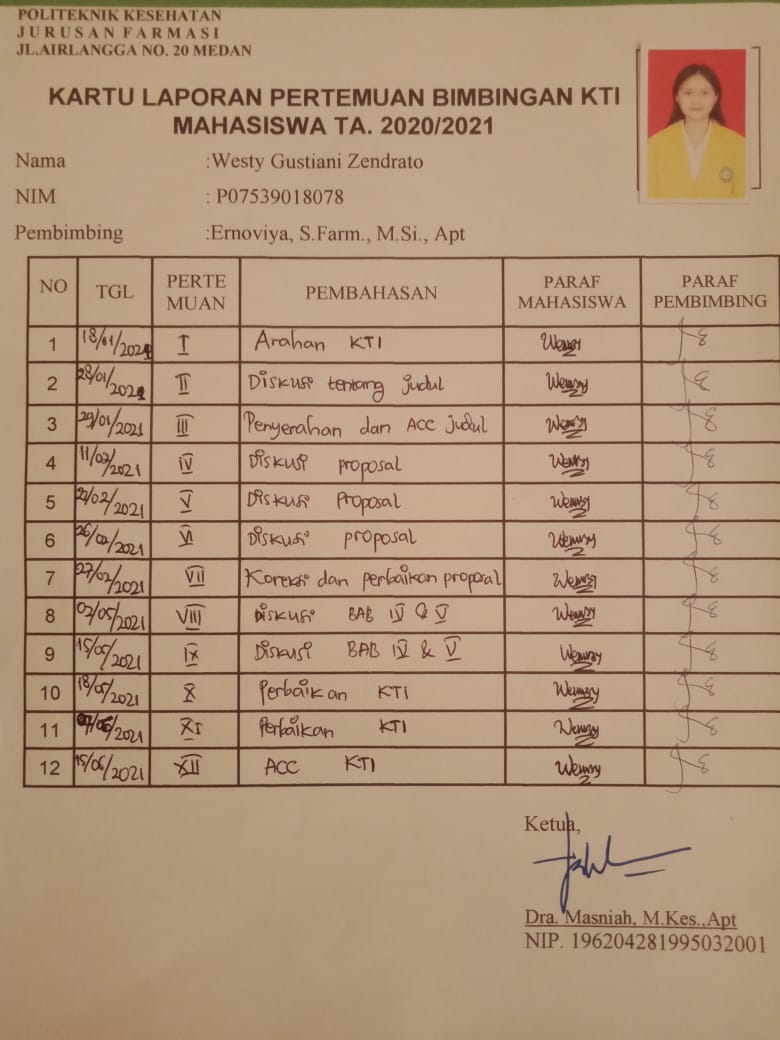 POLITEKNIK KESEHATAN
JURUSAN FARMASI
JL.AIRLANGGA NO. 20 MEDAN
KARTU LAPORAN PERTEMUAN BIMBINGAN KTI
MAHASISWA TA. 2020/2021
Nama :Westy Gustiani Zendrato
NIM : P07539018078
Pembimbing :Ernoviya, S.Farm., M.Si., Apt
NO TGL PERTE MUAN PEMBAHASAN PARAF MAHASISWA PARAF PEMBIMBING
1 18/01/2021 I Arahan KTI
2 28/01/2021 II Diskusi tentang judul
3 29/01/2021 III Penyerahan dan ACC judul
4 11/02/2021 IV Diskusi proposal
5 22/02/2021 V Diskusi Proposal
6 26/02/2021 VI Diskusi proposal
7 27/02/2021 VII Koreksi dan perbaikan proposal
8 03/05/2021 VIII Diskusi BAB IV & V
9 15/05/2021 IX Diskusi BAB IV & V
10 18/05/2021 X Perbaikan KTI
11 07/06/2021 XI Perbaikan KTI
12 15/06/2021 XII ACC KTI
Ketua,
Dra. Masniah, M.Kes.,Apt
NIP. 196204281995032001